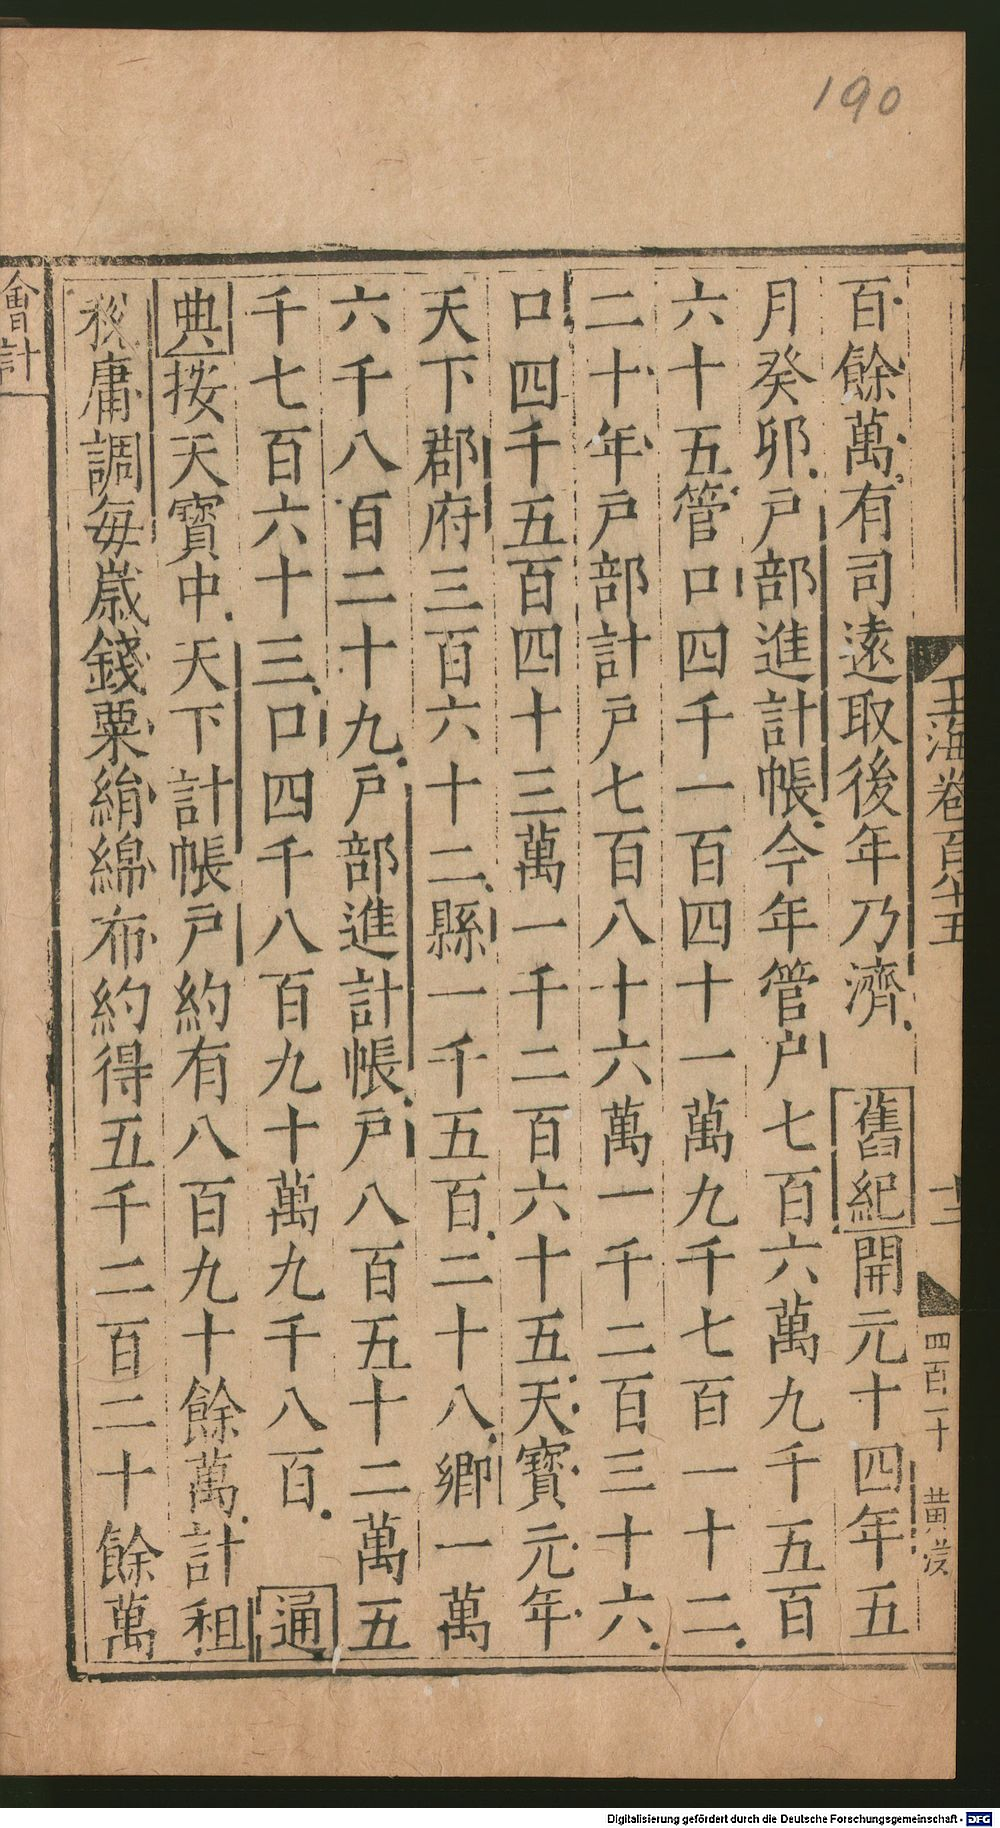 190
玉海卷百八十五
十三
四百一十
百餘萬有司遠取後年乃濟 舊紀開元十四年五
月癸卯戶部進計帳今年管戶七百六萬九千五百
六十五管口四千一百四十一萬九千七百一十二
二十年戶部計戶七百八十六萬一千二百三十六
口四千五百四十三萬一千二百六十五天寶元年
天下郡府三百六十二縣一千五百二十八鄉一萬
六千八百二十九戶部進計帳戶八百五十二萬五
千七百六十三口四千八百九十萬九千八百 通
典按天寶中天下計帳戶約有八百九十餘萬計租
稅庸調每歲錢粟絹綿布約得五千二百二十餘萬
會計
Digitalisierung gefördert durch die Deutsche Forschungsgemeinschaft - DFG